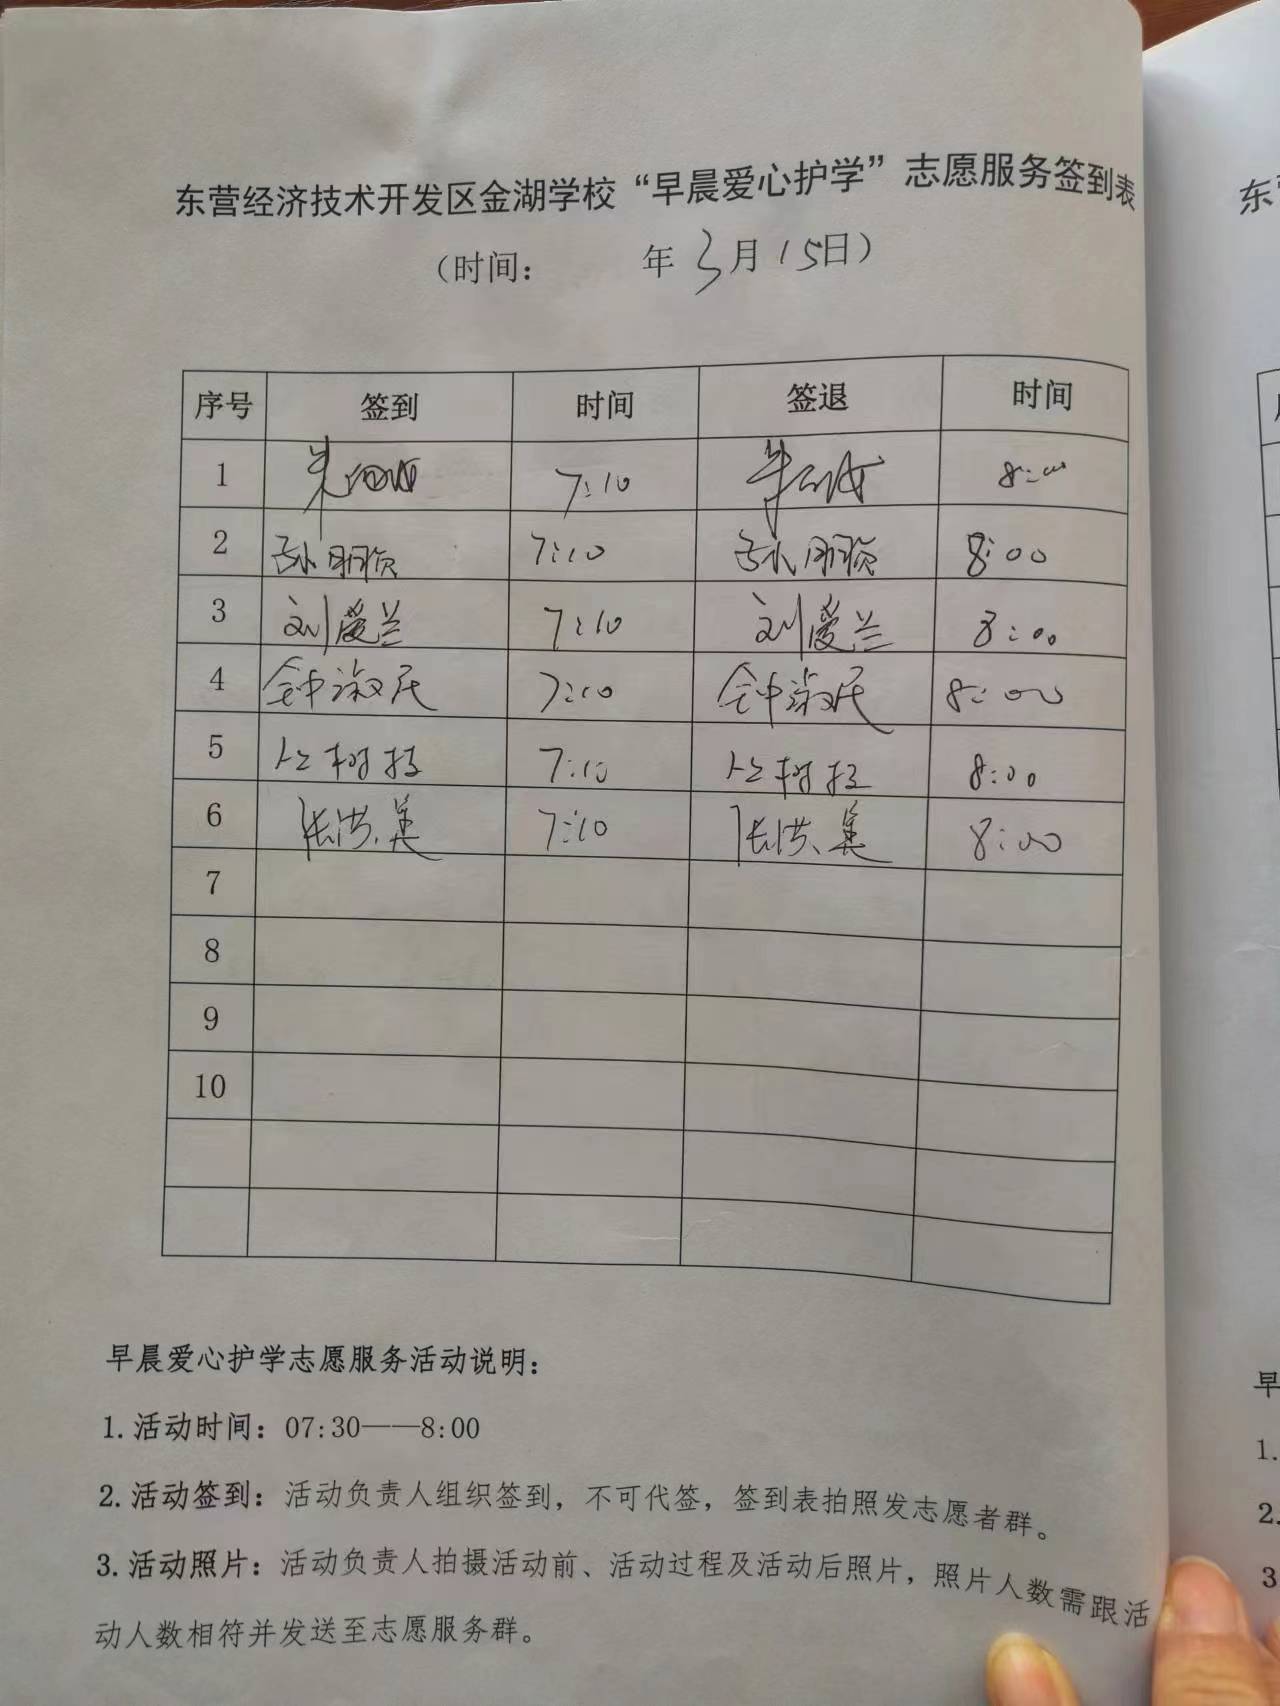 东营经济技术开发区金湖学校“早晨爱心护学”志愿服务签到表
（时间： 年 3月 15日）
序号 签到 时间 签退 时间
1 7:10 8:00
2 孙 7:10 孙 8:00
3 刘爱兰 7:10 刘爱兰 8:00
4 钟淑民 7:10 钟淑民 8:00
5 7:10 8:00
6 张洪美 7:10 张洪美 8:00
7
8
9
10
早晨爱心护学志愿服务活动说明：
1.活动时间：07:30——8:00
2.活动签到：活动负责人组织签到，不可代签，签到表拍照发志愿者群。
3.活动照片：活动负责人拍摄活动前、活动过程及活动后照片，照片人数需跟活
动人数相符并发送至志愿服务群。
东
早
1.
2.
3